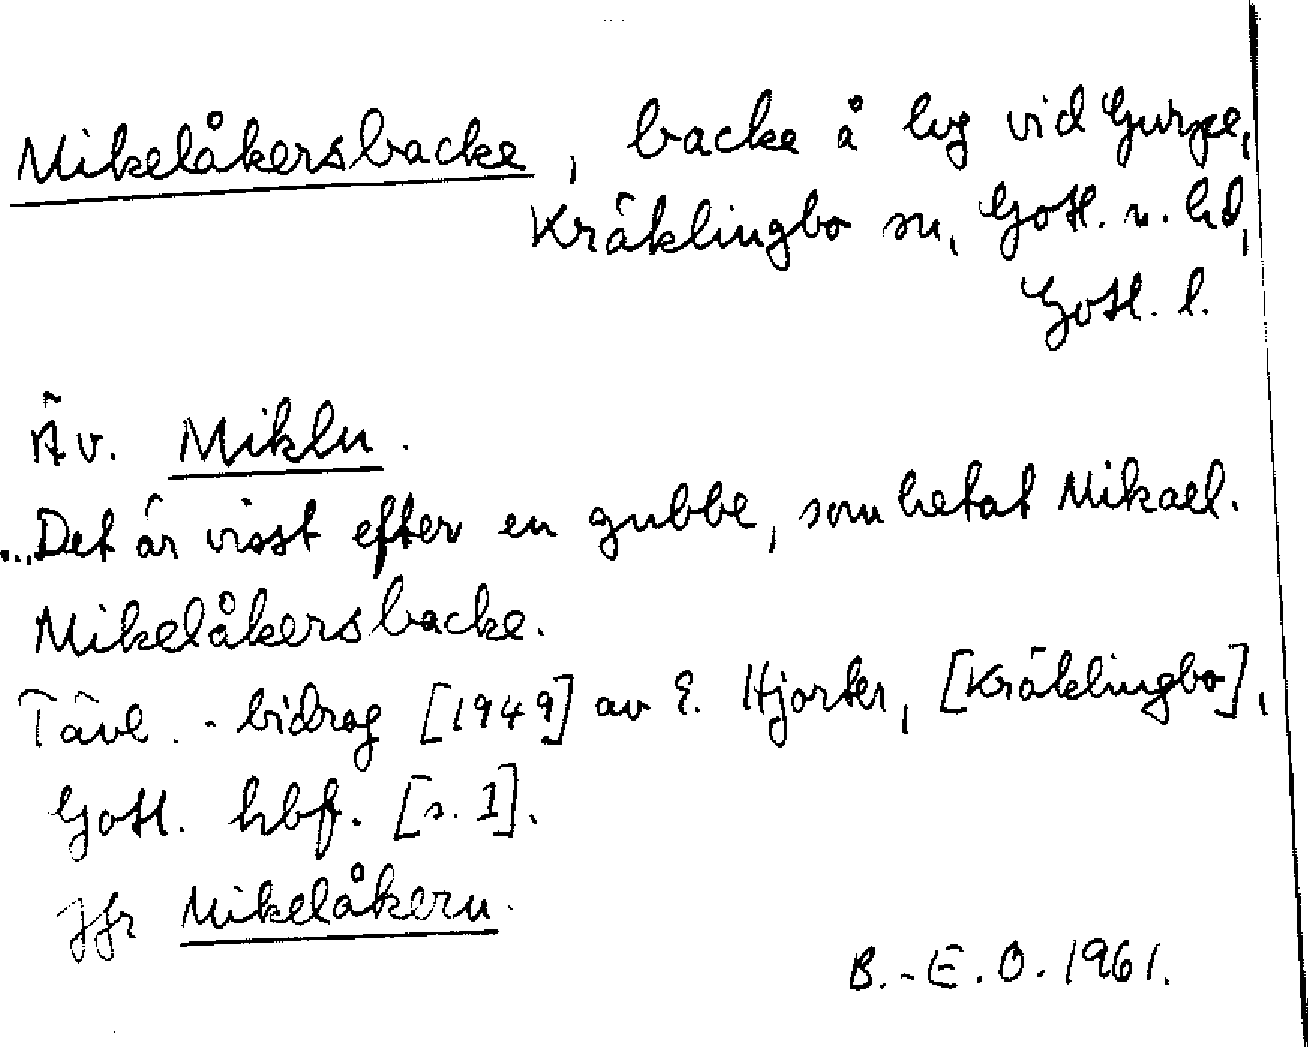 Mikelåkersbacke, backe å lvg vid Gurpe,
Kräklingbo sn, Gotl. n. hd,
Gotl. l.
Äv. Mikln.
"Det är visst efter en gubbe, som hetat Mikael.
Mikelåkersbacke.
Tävl.-bidrag [1949] av E. Hjorter, [Kräklingbo],
Gotl. hbf. [s. 1].
Jfr Mikelåkern.
B.-E. O. 1961.